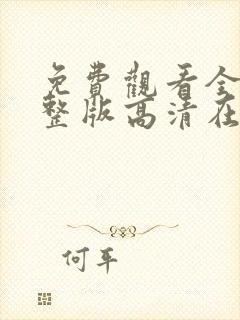 免費觀看全
整版高清在
何平